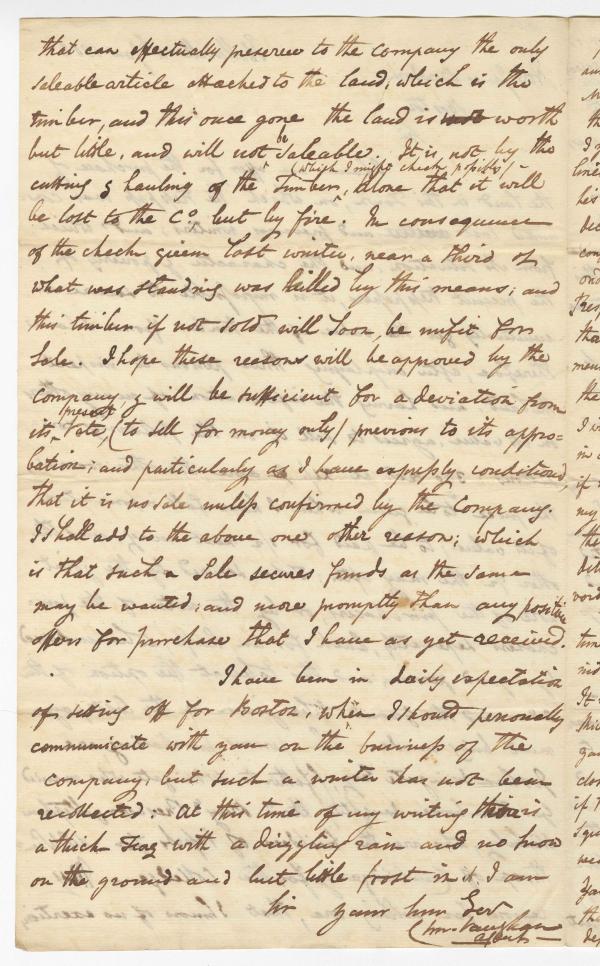 that can effectually preserve to the Company the only
saleable article attached to the land, which is the
timber, and this once gone the land is not worth
but little, and will not be saleable. It is not by the
(which I might check, possibly)
cutting & hauling of the Timber, alone that it will
be lost to the Co, but by fire. In consequence
of the check given last winter, near a third of
what was standing was killed by this means; and
this timber if not sold will soon be unfit for
Sale. I hope these reasons will be approved by the
Company & will be sufficient for a deviation from
its present Vote, (to sell for money only) previous to its appro=
bation; and particularly as I have expressly conditioned,
that it is no sale unless confirmed by the Company.
I shall add to the above one other reason; which
is that such a Sale secures funds as the same
may be wanted; and more promptly than any positive
offers for purchase that I have as yet received.
I have been in daily expectation
of setting off for Boston, when I should personally
communicate with you on the business of the
company, but such a winter has not been
recollected: At this time of my writing there is
a thick Fog with a drizzling rain and no snow
on the ground and but little frost in it I am
Sir your hum Ser
Chs Vaughan
agent